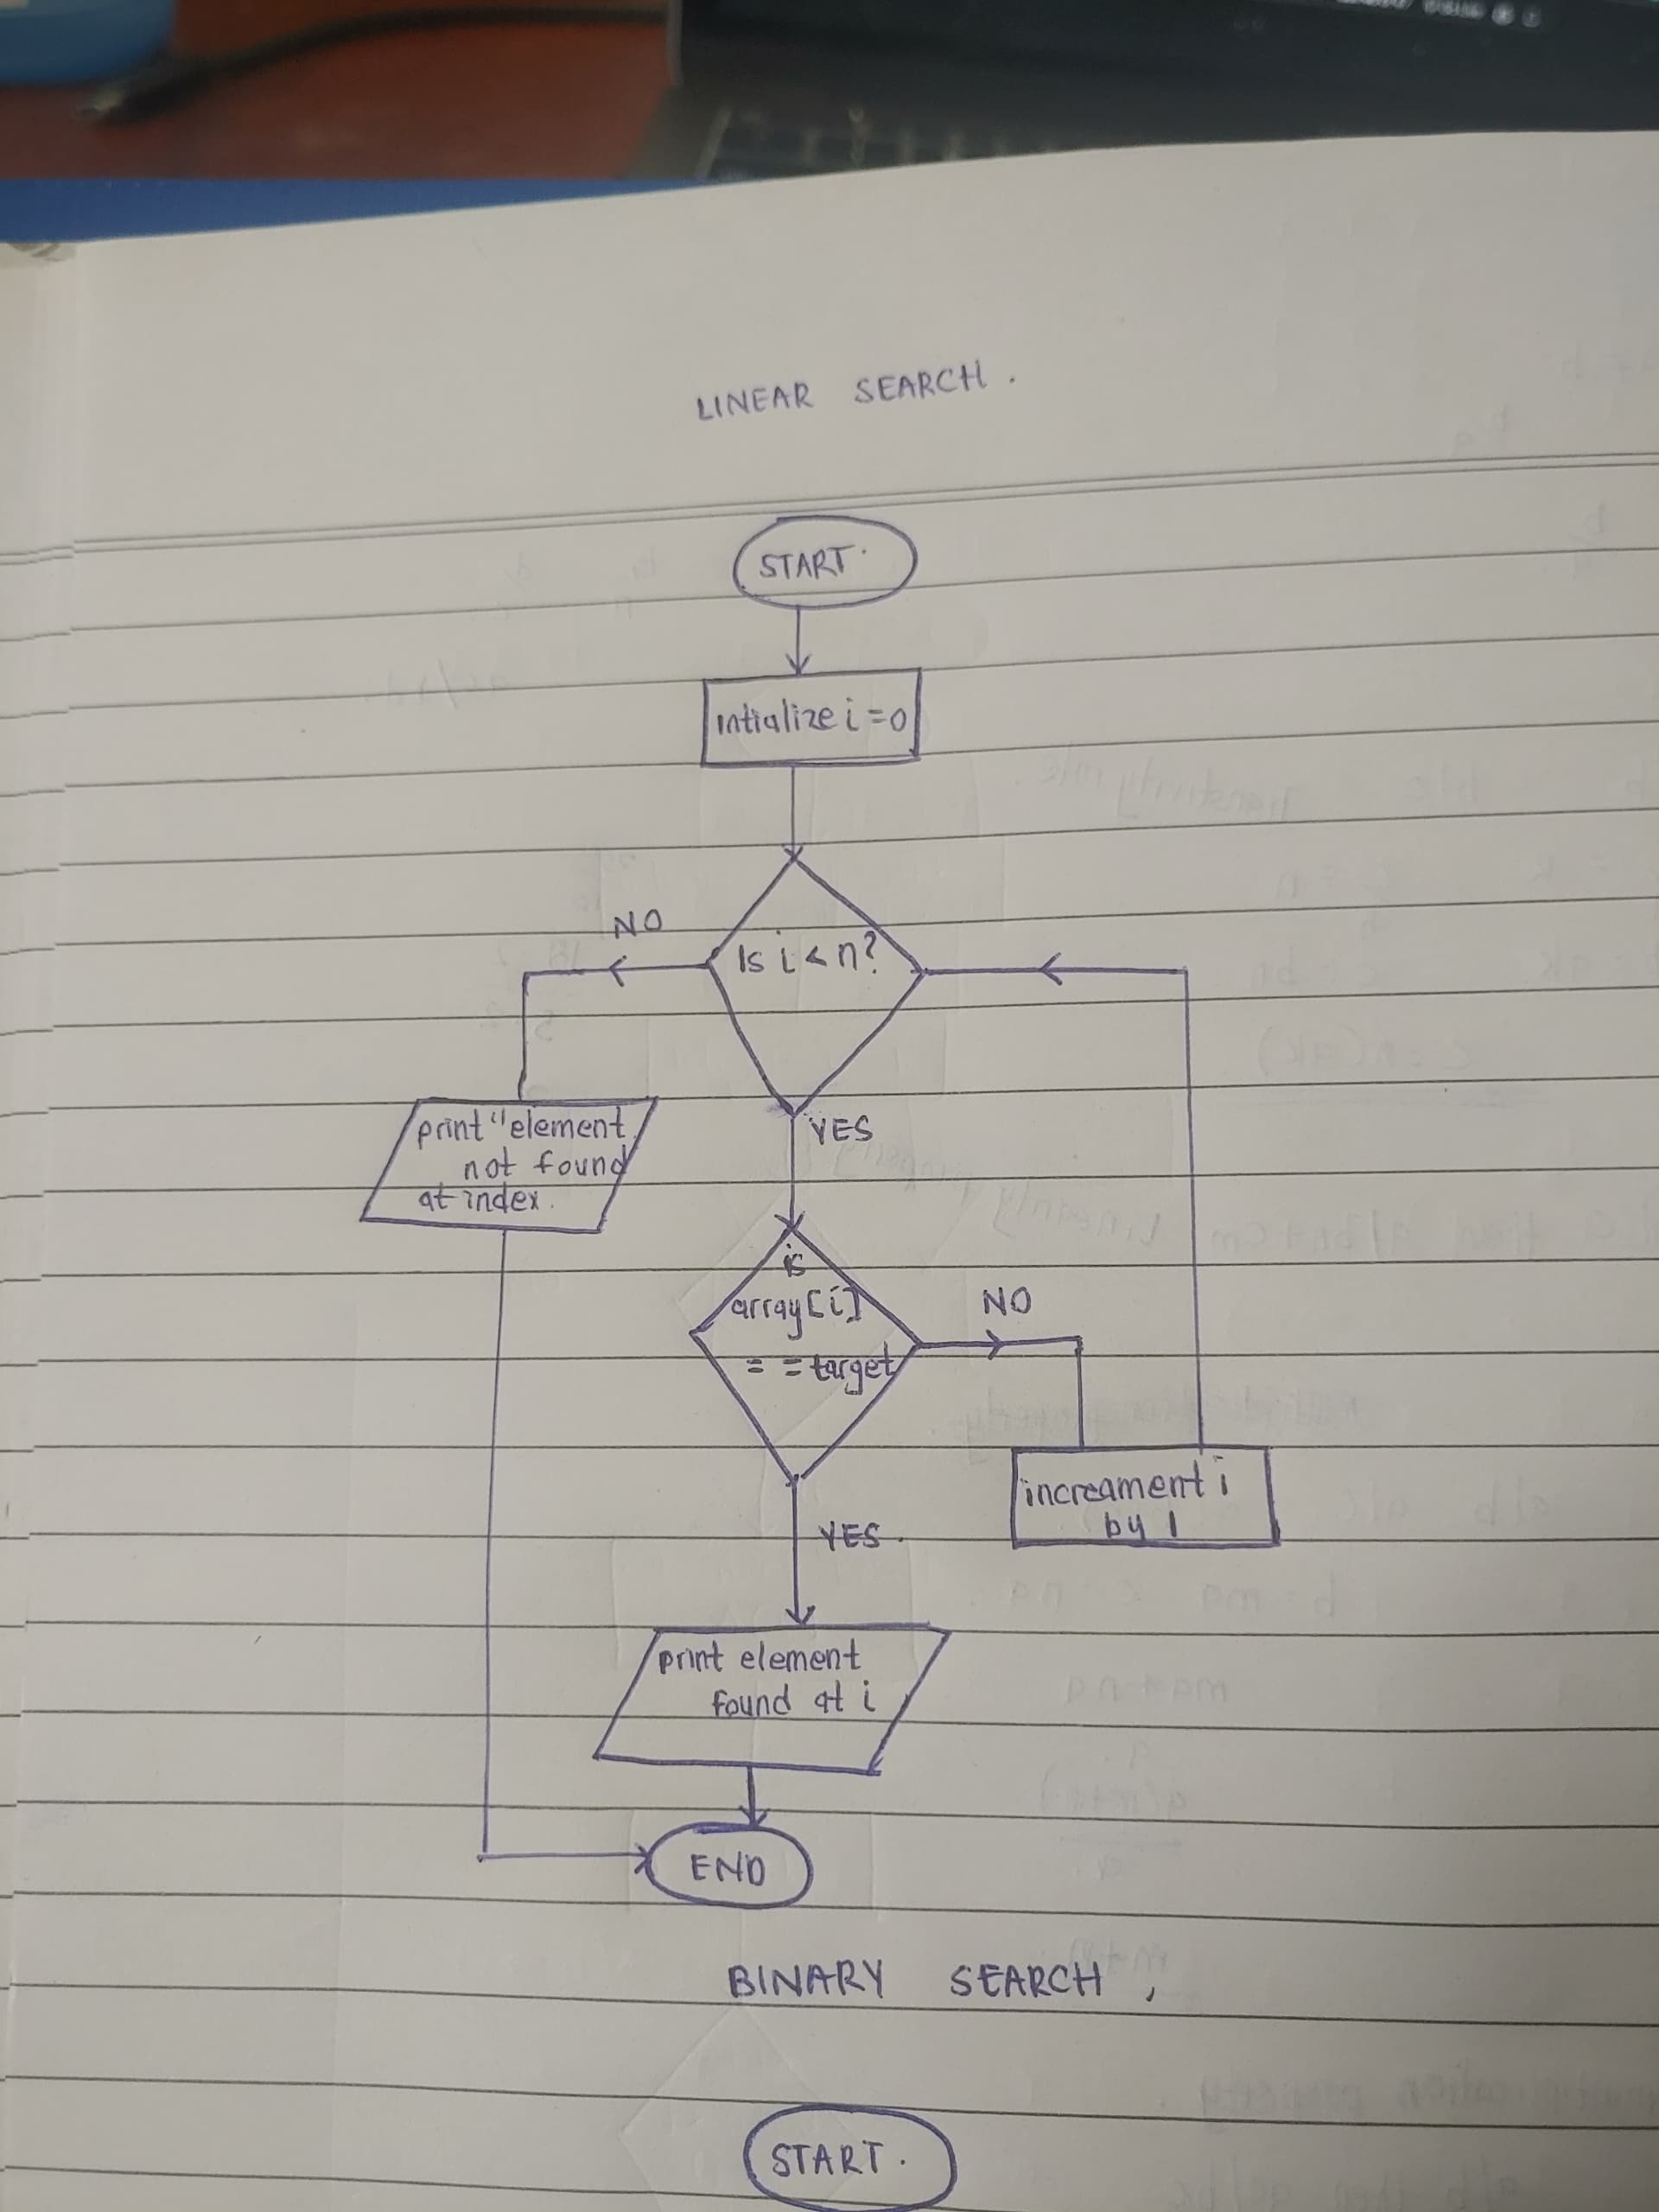 LINEAR SEARCH.
START.
intialize i=0
Is i < n?
NO
YES
print "element
not found
at index.
is
array[i]
= = target
NO
increament i
by 1
YES.
print element
found at i
END
BINARY SEARCH,
START.